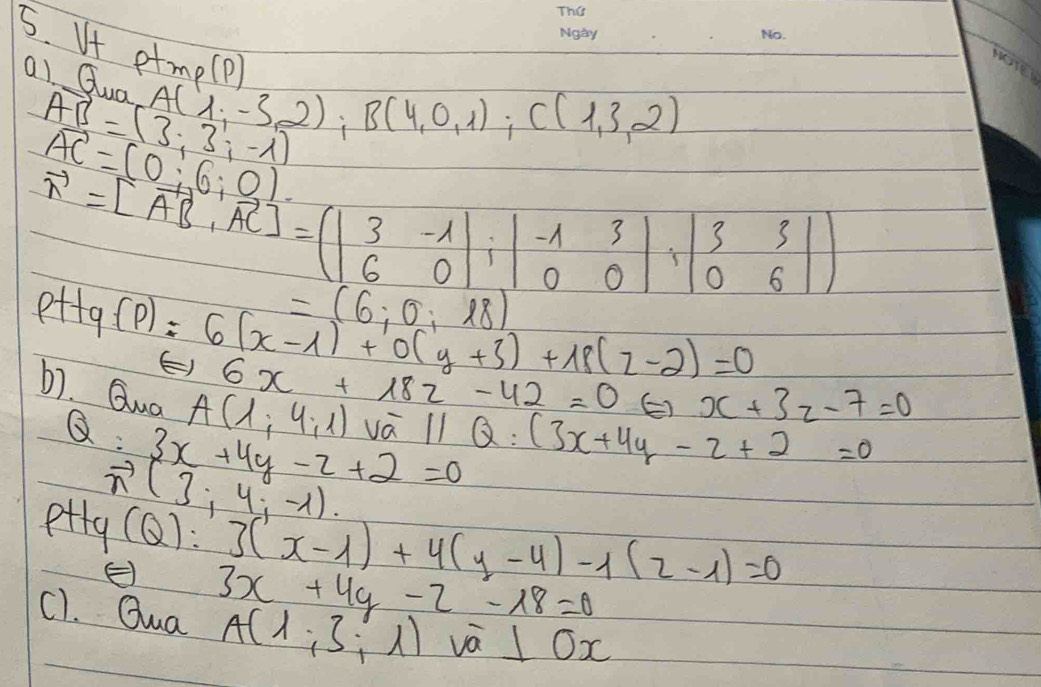 Thứ
Ngày No.
NOTE
5. Vt ptmp(P)
a). Qua A(1;-3,2); B(4,0,1); C(1,3,2)
→AB = (3; 3; -1)
→AC = (0; 6; 0).
→n = [→AB, →AC] = (|3 -1; 6 0| ; |-1 3; 0 0| ; |3 3; 0 6|)
= (6; 0; 18)
pttq (P): 6(x-1) + 0(y+3) + 18(z-2) = 0
⇔ 6x + 18z - 42 = 0 ⇔ x + 3z - 7 = 0
b). Qua A(1; 4; 1) và // Q: (3x + 4y - z + 2 = 0
Q: 3x + 4y - z + 2 = 0
→n (3; 4; -1).
pttq (Q): 3(x-1) + 4(y-4) - 1(z-1) = 0
⇔ 3x + 4y - z - 18 = 0
c). Qua A(1; 3; 1) và ⊥ Ox